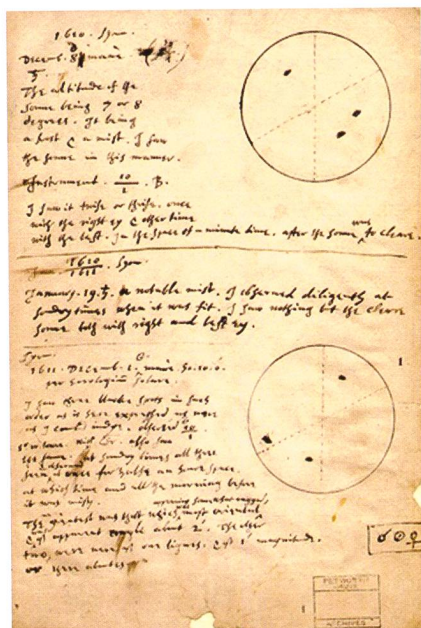 1610. Syon.
Decemb. 8. mane
The altitude of the
sonne being 7 or 8
degrees. It being
a frost & a mist. I saw
the sonne in this manner.
Instrument. 10/1. B.
I saw it twise or thrise. once
with the right ey & other time
with the left. In the space of a minute time. after the sonne was to cleare.
1610/1611 Syon.
January. 19. ♄. a notable mist. I observed diligently at
sondry times when it was fit. I saw nothing but the cleare
sonne both with right and left ey.
Syon.
1611. Decemb. 1. ☉. mane.
per horologium solare.
I saw three blacke spots in such
order as is here expressed as nere
as I could judge. observed 10/1
also saw
the same. at sondry times all three
seen, for halfe an houre space.
at which time and all the morning before
it was misty.
The greatest was that which most oriental
apparent angle about 2'. The other
two, were nere of one bignes. 1' magnitude.
or there abouts
1
♂☉♀
PETWORTH
HOUSE
1
ARCHIVES